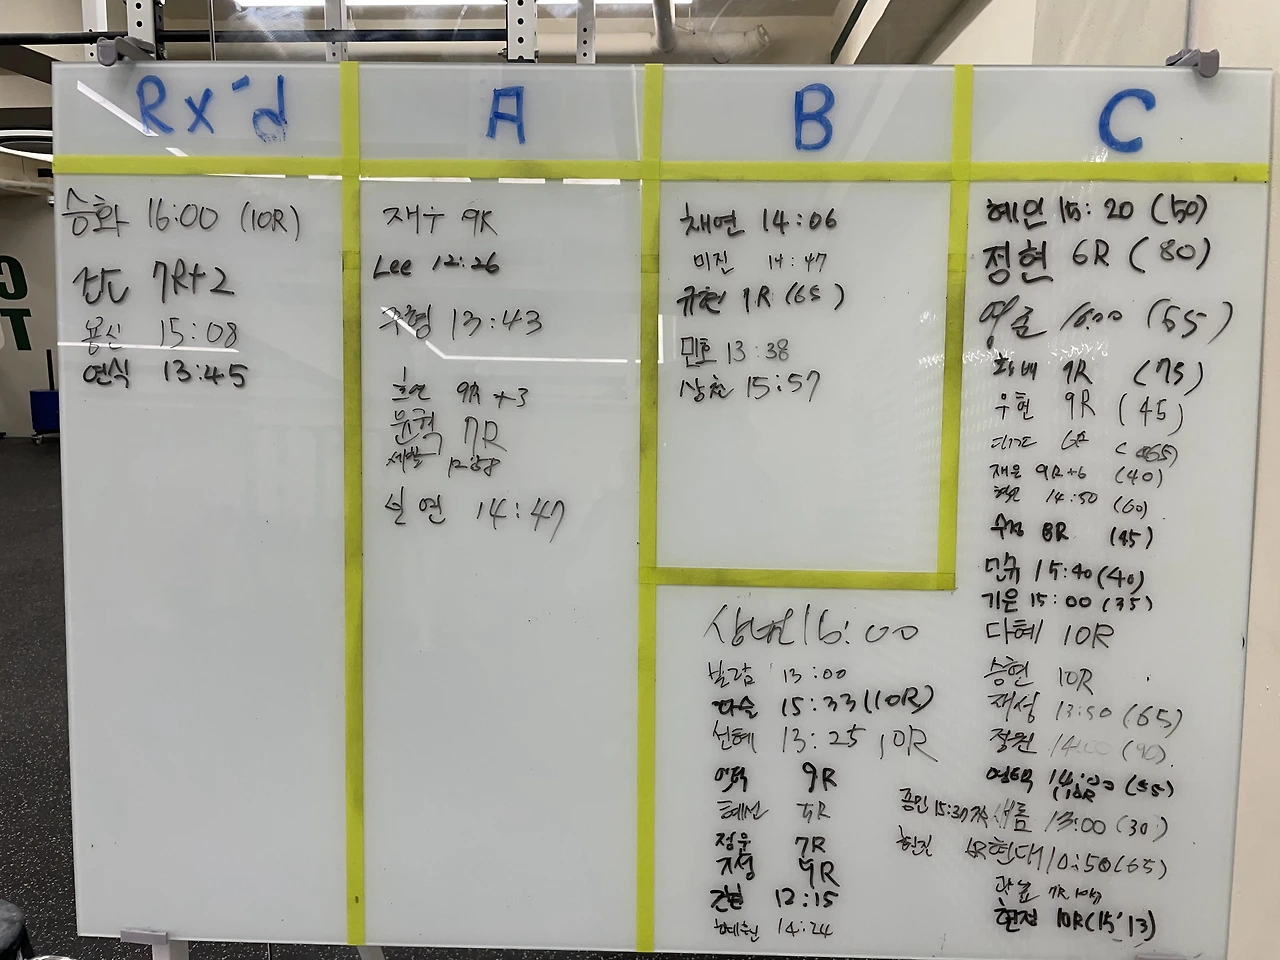 Rx'd
승화 16:00 (10R)
산도 7R+2
용신 15:08
연식 13:45
A
재우 9R
Lee 12:26
우형 13:43
9R +3
문혁 7R
세훈 12:58
연 14:47
B
채연 14:06
미진 14:47
규현 9R (65)
민호 13:38
상훈 15:57
C
혜인 15:20 (50)
정현 6R (80)
16:00 (65)
9R (75)
우현 9R (45)
(65)
재윤 9R+6 (40)
14:50 (60)
수정 8R (45)
민규 15:40 (40)
기은 15:00 (35)
다혜 10R
승현 10R
재성 13:50 (65)
정원 14:00 (90)
14:00 (55)
(10R
새롬 13:00 (30)
현대 10:50 (65)
7R
현정 10R (15:13)
16:00
13:00
다슬 15:33 (10R)
선혜 13:25 10R
9R
혜선
정윤 7R
지성 9R
12:15
14:24
15:37
현진